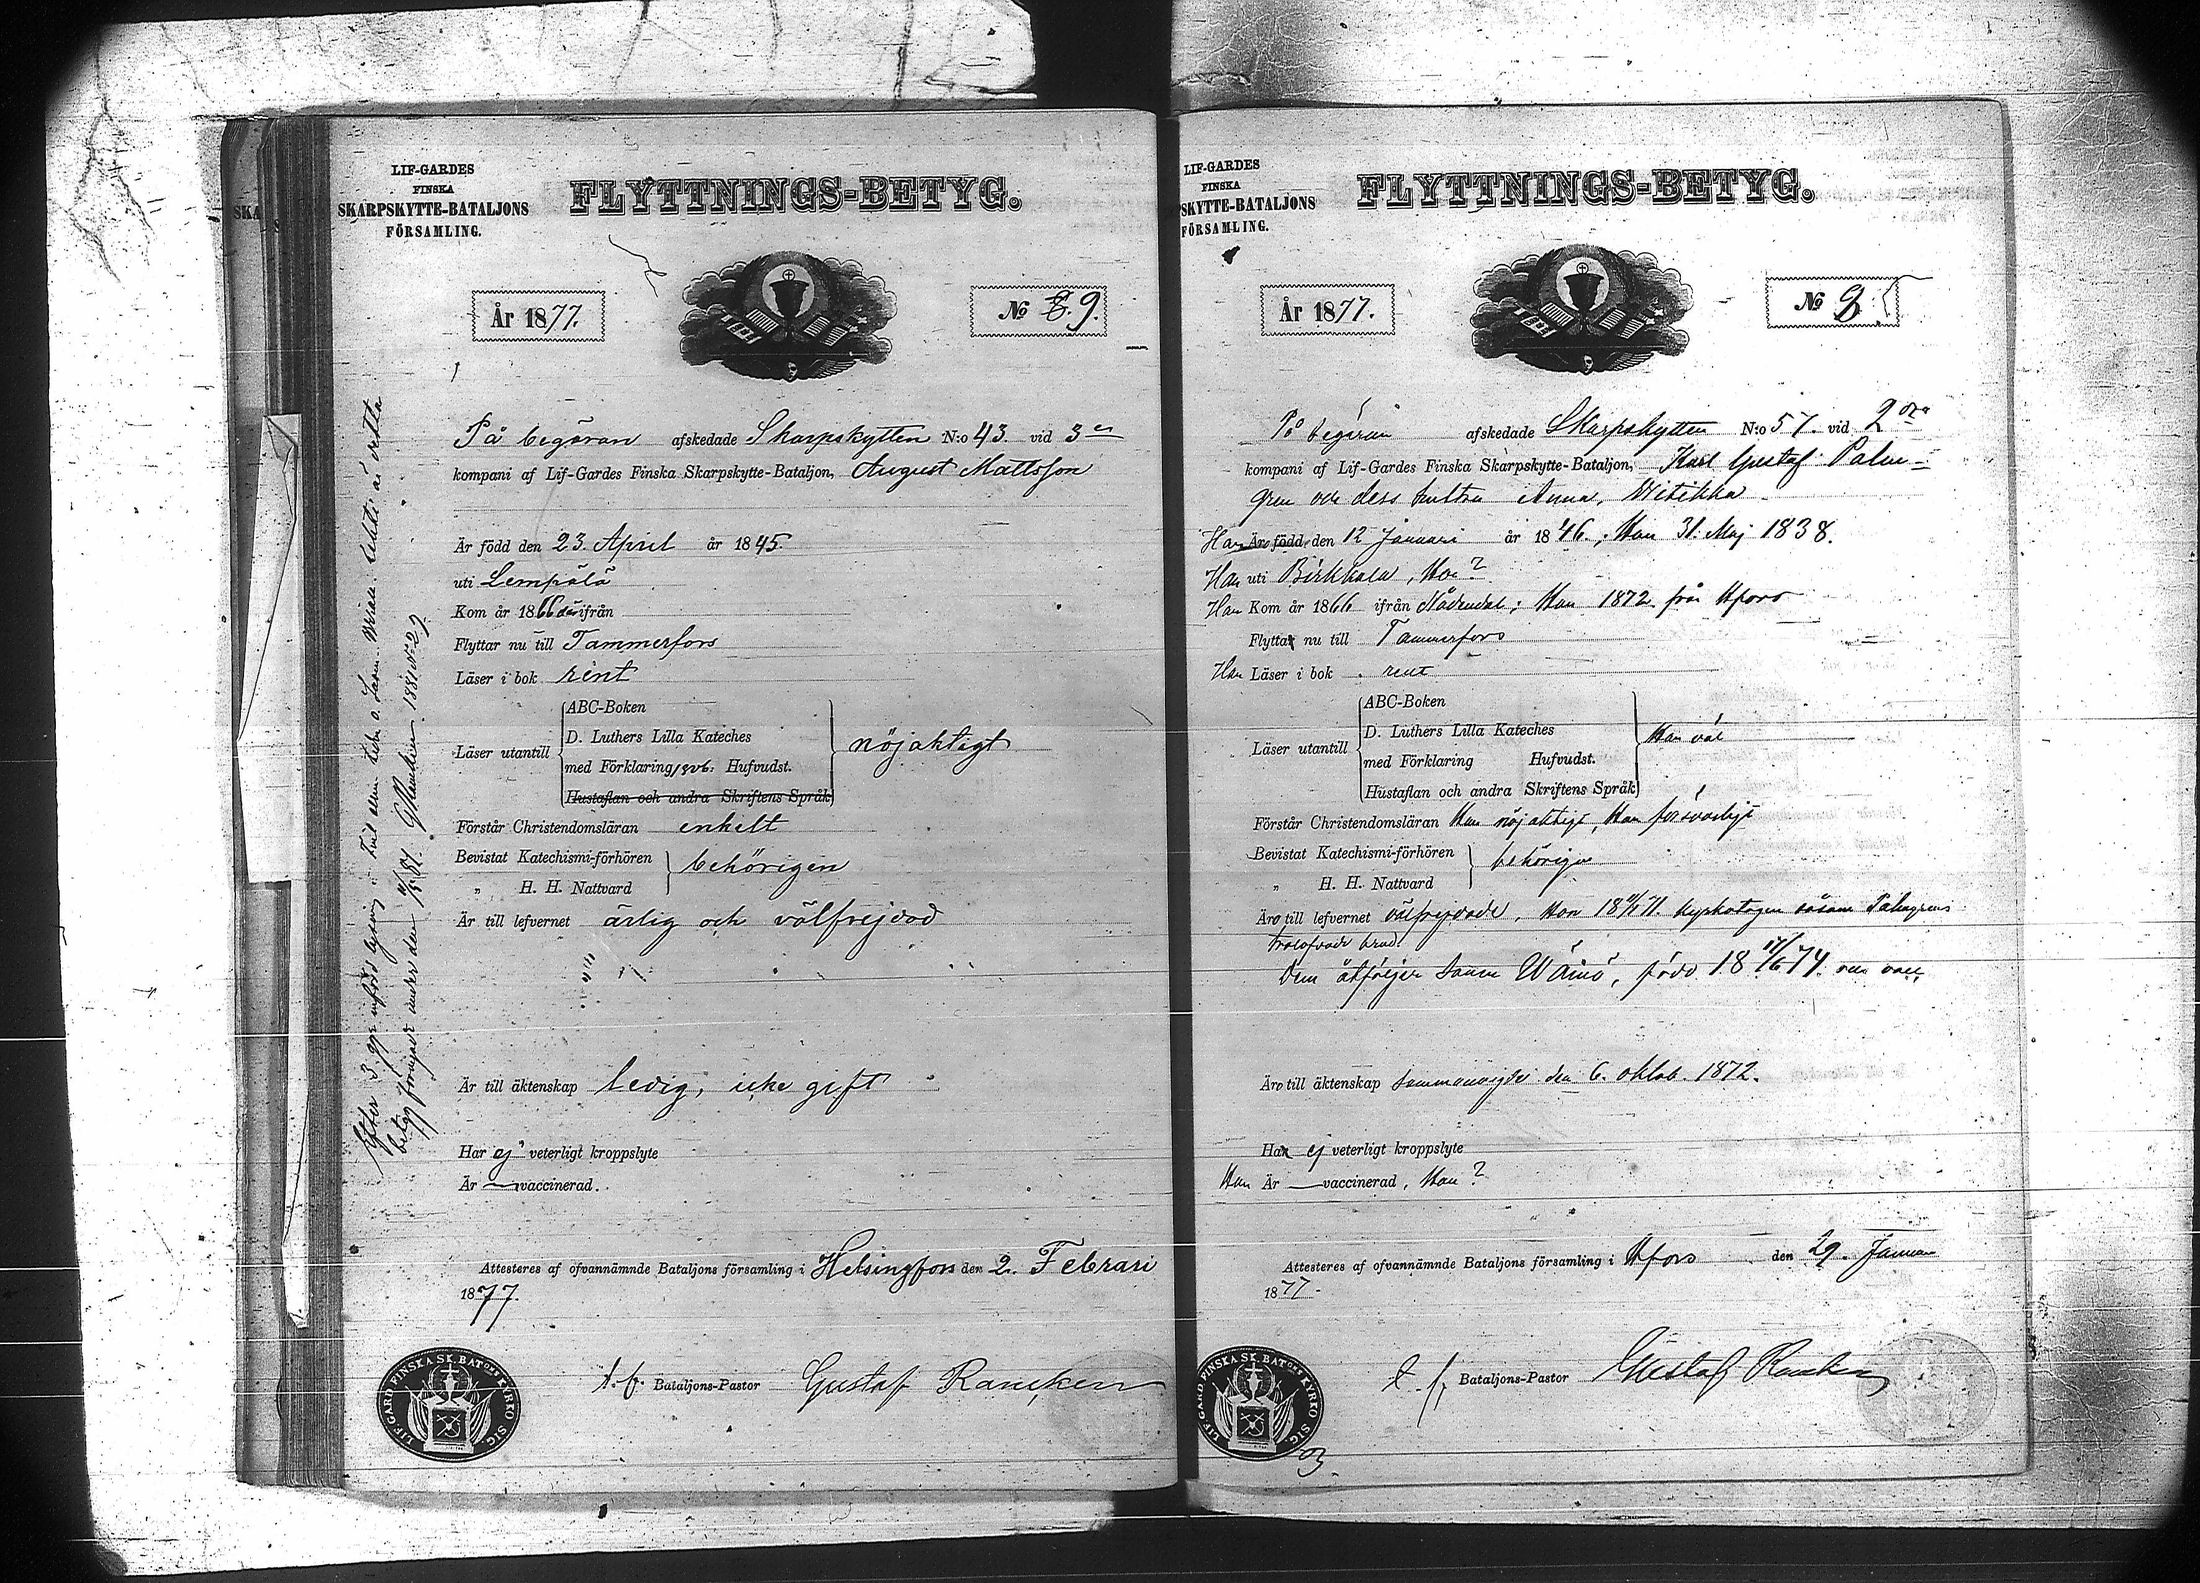 LIF-GARDES
FINSKA
SKARPSKYTTE-BATALJONS
FÖRSAMLING.
FLYTTNINGS-BETYG.
År 1877.
No 8. 9.
På begäran afskedade Skarpskytten N:o 43. vid 3e
kompani af Lif-Gardes Finska Skarpskytte-Bataljon, August Mattsson
Är född den 23. April år 1845.
uti Lempälä
Kom år 1866 därifrån
Flyttar nu till Tammerfors
Läser i bok rent
Läser utantill
ABC-Boken
D. Luthers Lilla Kateches
med Förklaring Hufvudst.
Hustaflan och andra Skriftens Språk
nöjaktigt
Förstår Christendomsläran enkelt
Bevistat Katechismi-förhören
„ H. H. Nattvard
behörigen
Är till lefvernet ärlig och välfrejdad
Är till äktenskap ledig, icke gift
Har ej veterligt kroppslyte
Är — vaccinerad.
Attesteres af ofvannämnde Bataljons församling i Helsingfors den 2. Februari
1877.
t. f. Bataljons-Pastor Gustaf Rancken
LIF. GARD FINSKA SK. BATONS KYRKO SIG.
Efter 3 ggr införd lysning i
betyg förnyadt under den 1881 No 29.
LIF-GARDES
FINSKA
SKYTTE-BATALJONS
FÖRSAMLING.
FLYTTNINGS-BETYG.
År 1877.
No 8
På begäran afskedade Skarpskytten N:o 57. vid 2dra
kompani af Lif-Gardes Finska Skarpskytte-Bataljon, Karl Gustaf Palm-
gren och dess hustru Anna, Witikka
Han Äro född den 12 Januari år 1846, Hon 31. Maj 1838.
Han uti Birkkala, Hon?
Han Kom år 1866 ifrån Nådendal; Hon 1872 från Hfors
Flytta nu till Tammerfors
Han Läser i bok rent
Läser utantill
ABC-Boken
D. Luthers Lilla Kateches
med Förklaring Hufvudst.
Hustaflan och andra Skriftens Språk
Hon väl
Förstår Christendomsläran Han nöjaktigt, Hon försvarligt
Bevistat Katechismi-förhören
„ H. H. Nattvard
behörigen
Äro till lefvernet välfrejdade, Hon kyrkotagen såsom Palmgrens
trolofvade brud.
Dem åtföljer sonen Wäinö, född 18 17/6 74. och vacc.
Äro till äktenskap sammanvigde den 6. oktob. 1872.
Ha ej veterligt kroppslyte
Han Är — vaccinerad, Hon?
Attesteres af ofvannämnde Bataljons församling i Hfors den 29. Januari
1877.
t. f. Bataljons-Pastor Gustaf Rancken
LIF. GARD FINSKA SK. BATONS KYRKO SIG.